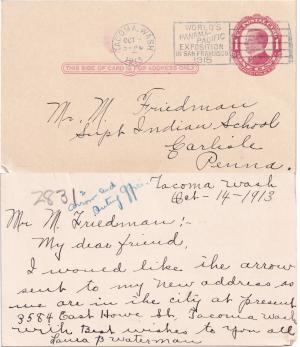 TACOMA, WASH.
OCT
1913
WORLD'S
PANAMA-PACIFIC
EXPOSITION
IN SAN FRANCISCO
1915
THIS SIDE OF CARD IS FOR ADDRESS ONLY
Mr. M. Friedman
Supt Indian School
Carlisle
Penna.
2831
arrow and
Tacoma Wash
Oct-14-1913
Mr M. Friedman;-
My dear friend,
I would like the arrow
sent to my new address as
we are in the city at present
3584 East Howe St, Tacoma Wash
with Best wishes to you all
Laura B Waterman